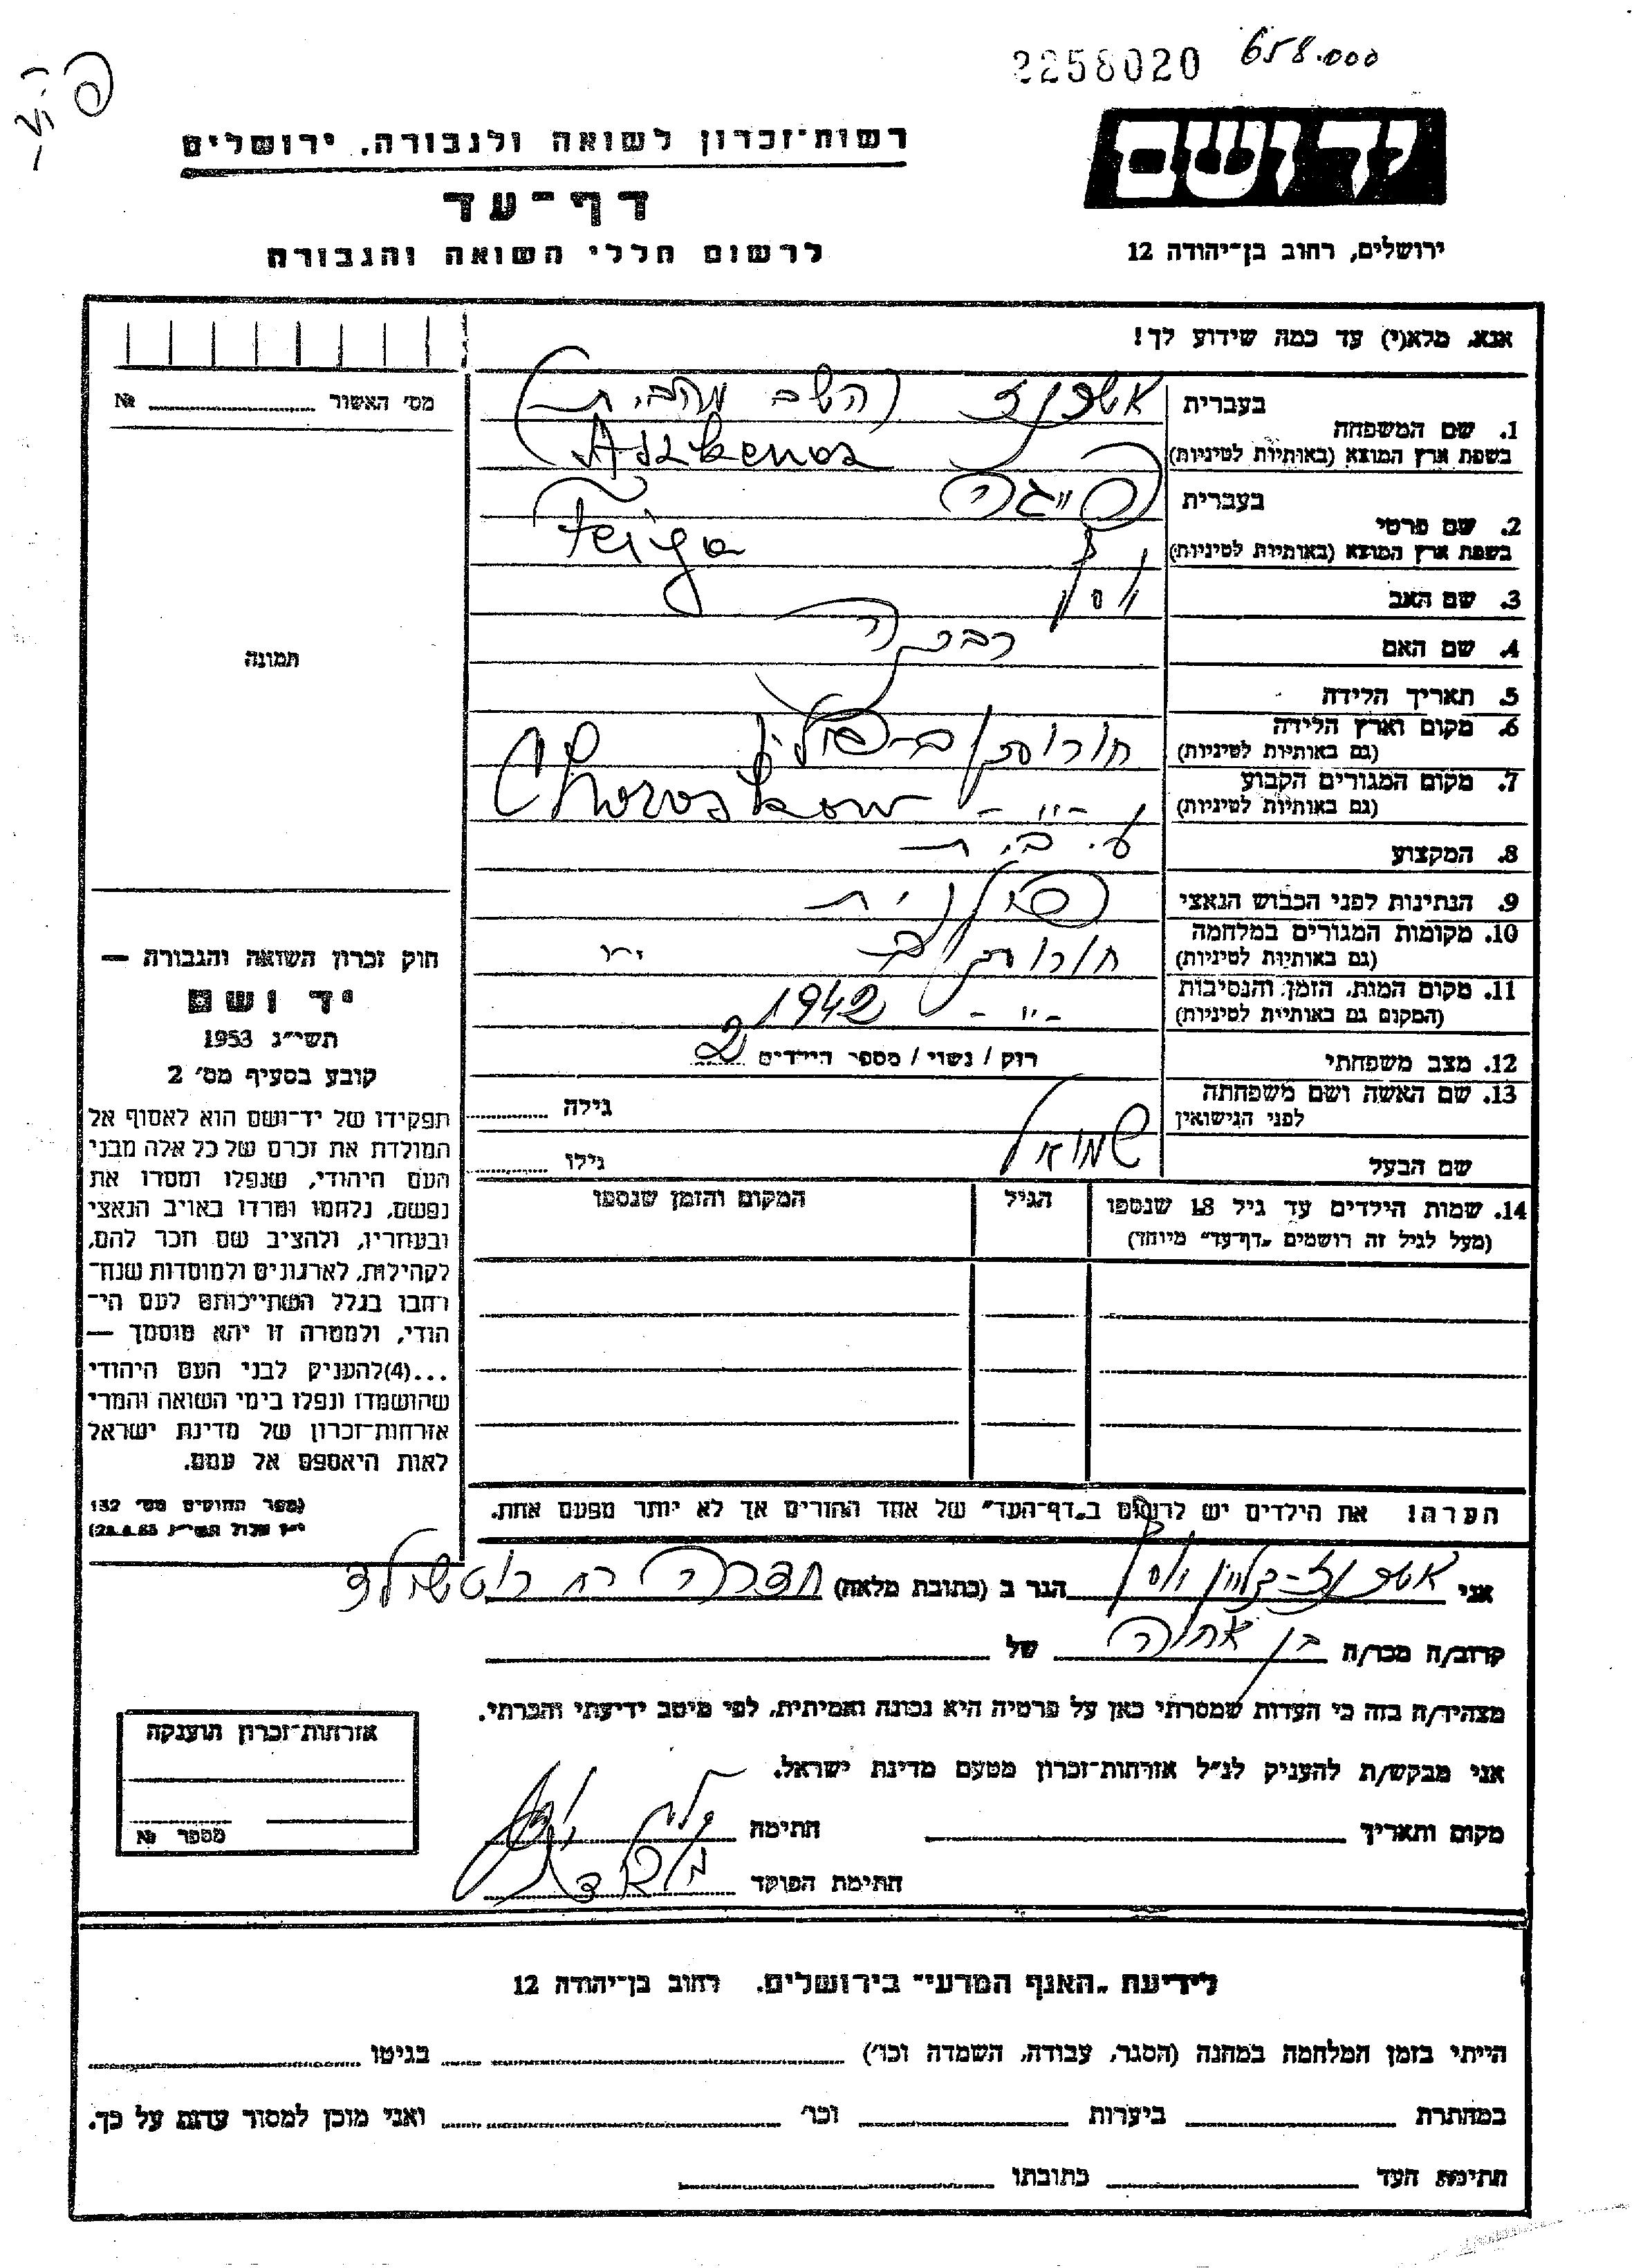 2258020 658.000
יד ושם
ירושלים, רחוב בן־יהודה 12
רשות־זכרון לשואה ולגבורה, ירושלים
דף־עד
לרשום חללי השואה והגבורה
אנא, מלא(י) עד כמה שידוע לך!
מס׳ האשור № 
1. שם המשפחה
בעברית אשכנז
בשפת ארץ המוצא (באותיות לטיניות) Aszkenaz
2. שם פרטי
בעברית פייגה
בשפת ארץ המוצא (באותיות לטיניות) Feiga
3. שם האב יוסף
4. שם האם רבקה
5. תאריך הלידה
6. מקום וארץ הלידה חורוסקוב - פולין
(גם באותיות לטיניות)
7. מקום המגורים הקבוע -"- Choroskow
(גם באותיות לטיניות)
8. המקצוע ע. בית
9. הנתינות לפני הכבוש הנאצי פולנית
10. מקומות המגורים במלחמה חורוסקוב
(גם באותיות לטיניות)
11. מקום המות, הזמן והנסיבות -"- 1942
(המקום גם באותיות לטיניות)
12. מצב משפחתי רוק / נשוי / מספר הילדים 2
13. שם האשה ושם משפחתה
לפני הנישואין גילה
שם הבעל שמואל גילו
14. שמות הילדים עד גיל 18 שנספו הגיל המקום והזמן שנספו
(מעל לגיל זה רושמים „דף־עד" מיוחד)
הערה! את הילדים יש לרשום ב„דף־העד" של אחד ההורים אך לא יותר מפעם אחת.
תמונה
חוק זכרון השואה והגבורה —
יד ושם
תשי״ג 1953
קובע בסעיף מס׳ 2
תפקידו של יד־ושם הוא לאסוף אל
המולדת את זכרם של כל אלה מבני
העם היהודי, שנפלו ומסרו את
נפשם, נלחמו ומרדו באויב הנאצי
ובעוזריו, ולהציב שם וזכר להם,
לקהילות, לארגונים ולמוסדות שנח־
רחבו בגלל השתייכותם לעם הי־
הודי, ולמטרה זו יהא מוסמך —
...(4)להעניק לבני העם היהודי
שהושמדו ונפלו בימי השואה והמרי
אזרחות־זכרון של מדינת ישראל
לאות היאספם אל עמם.
(ספר החוקים מס׳ 132
י״ז אלול תשי״ג 28.8.53)
אני אשכנז־קליין יוסף הגר ב (כתובת מלאה) חדרה רח רוטשילד
קרוב/ה מכר/ה בן אחיה של
מצהיר/ה בזה כי העדות שמסרתי כאן על פרטיה היא נכונה ואמיתית, לפי מיטב ידיעתי והכרתי.
אני מבקש/ת להעניק לנ״ל אזרחות־זכרון מטעם מדינת ישראל.
מקום ותאריך חתימה
חתימת הפוקד
אזרחות־זכרון הוענקה
מספר №
לידיעת „האגף המדעי" בירושלים, רחוב בן־יהודה 12
הייתי בזמן המלחמה במחנה (הסגר, עבודה, השמדה וכו׳) בגיטו
במחתרת ביערות וכו׳ ואני מוכן למסור עדות על כך.
חתימת העד כתובתו